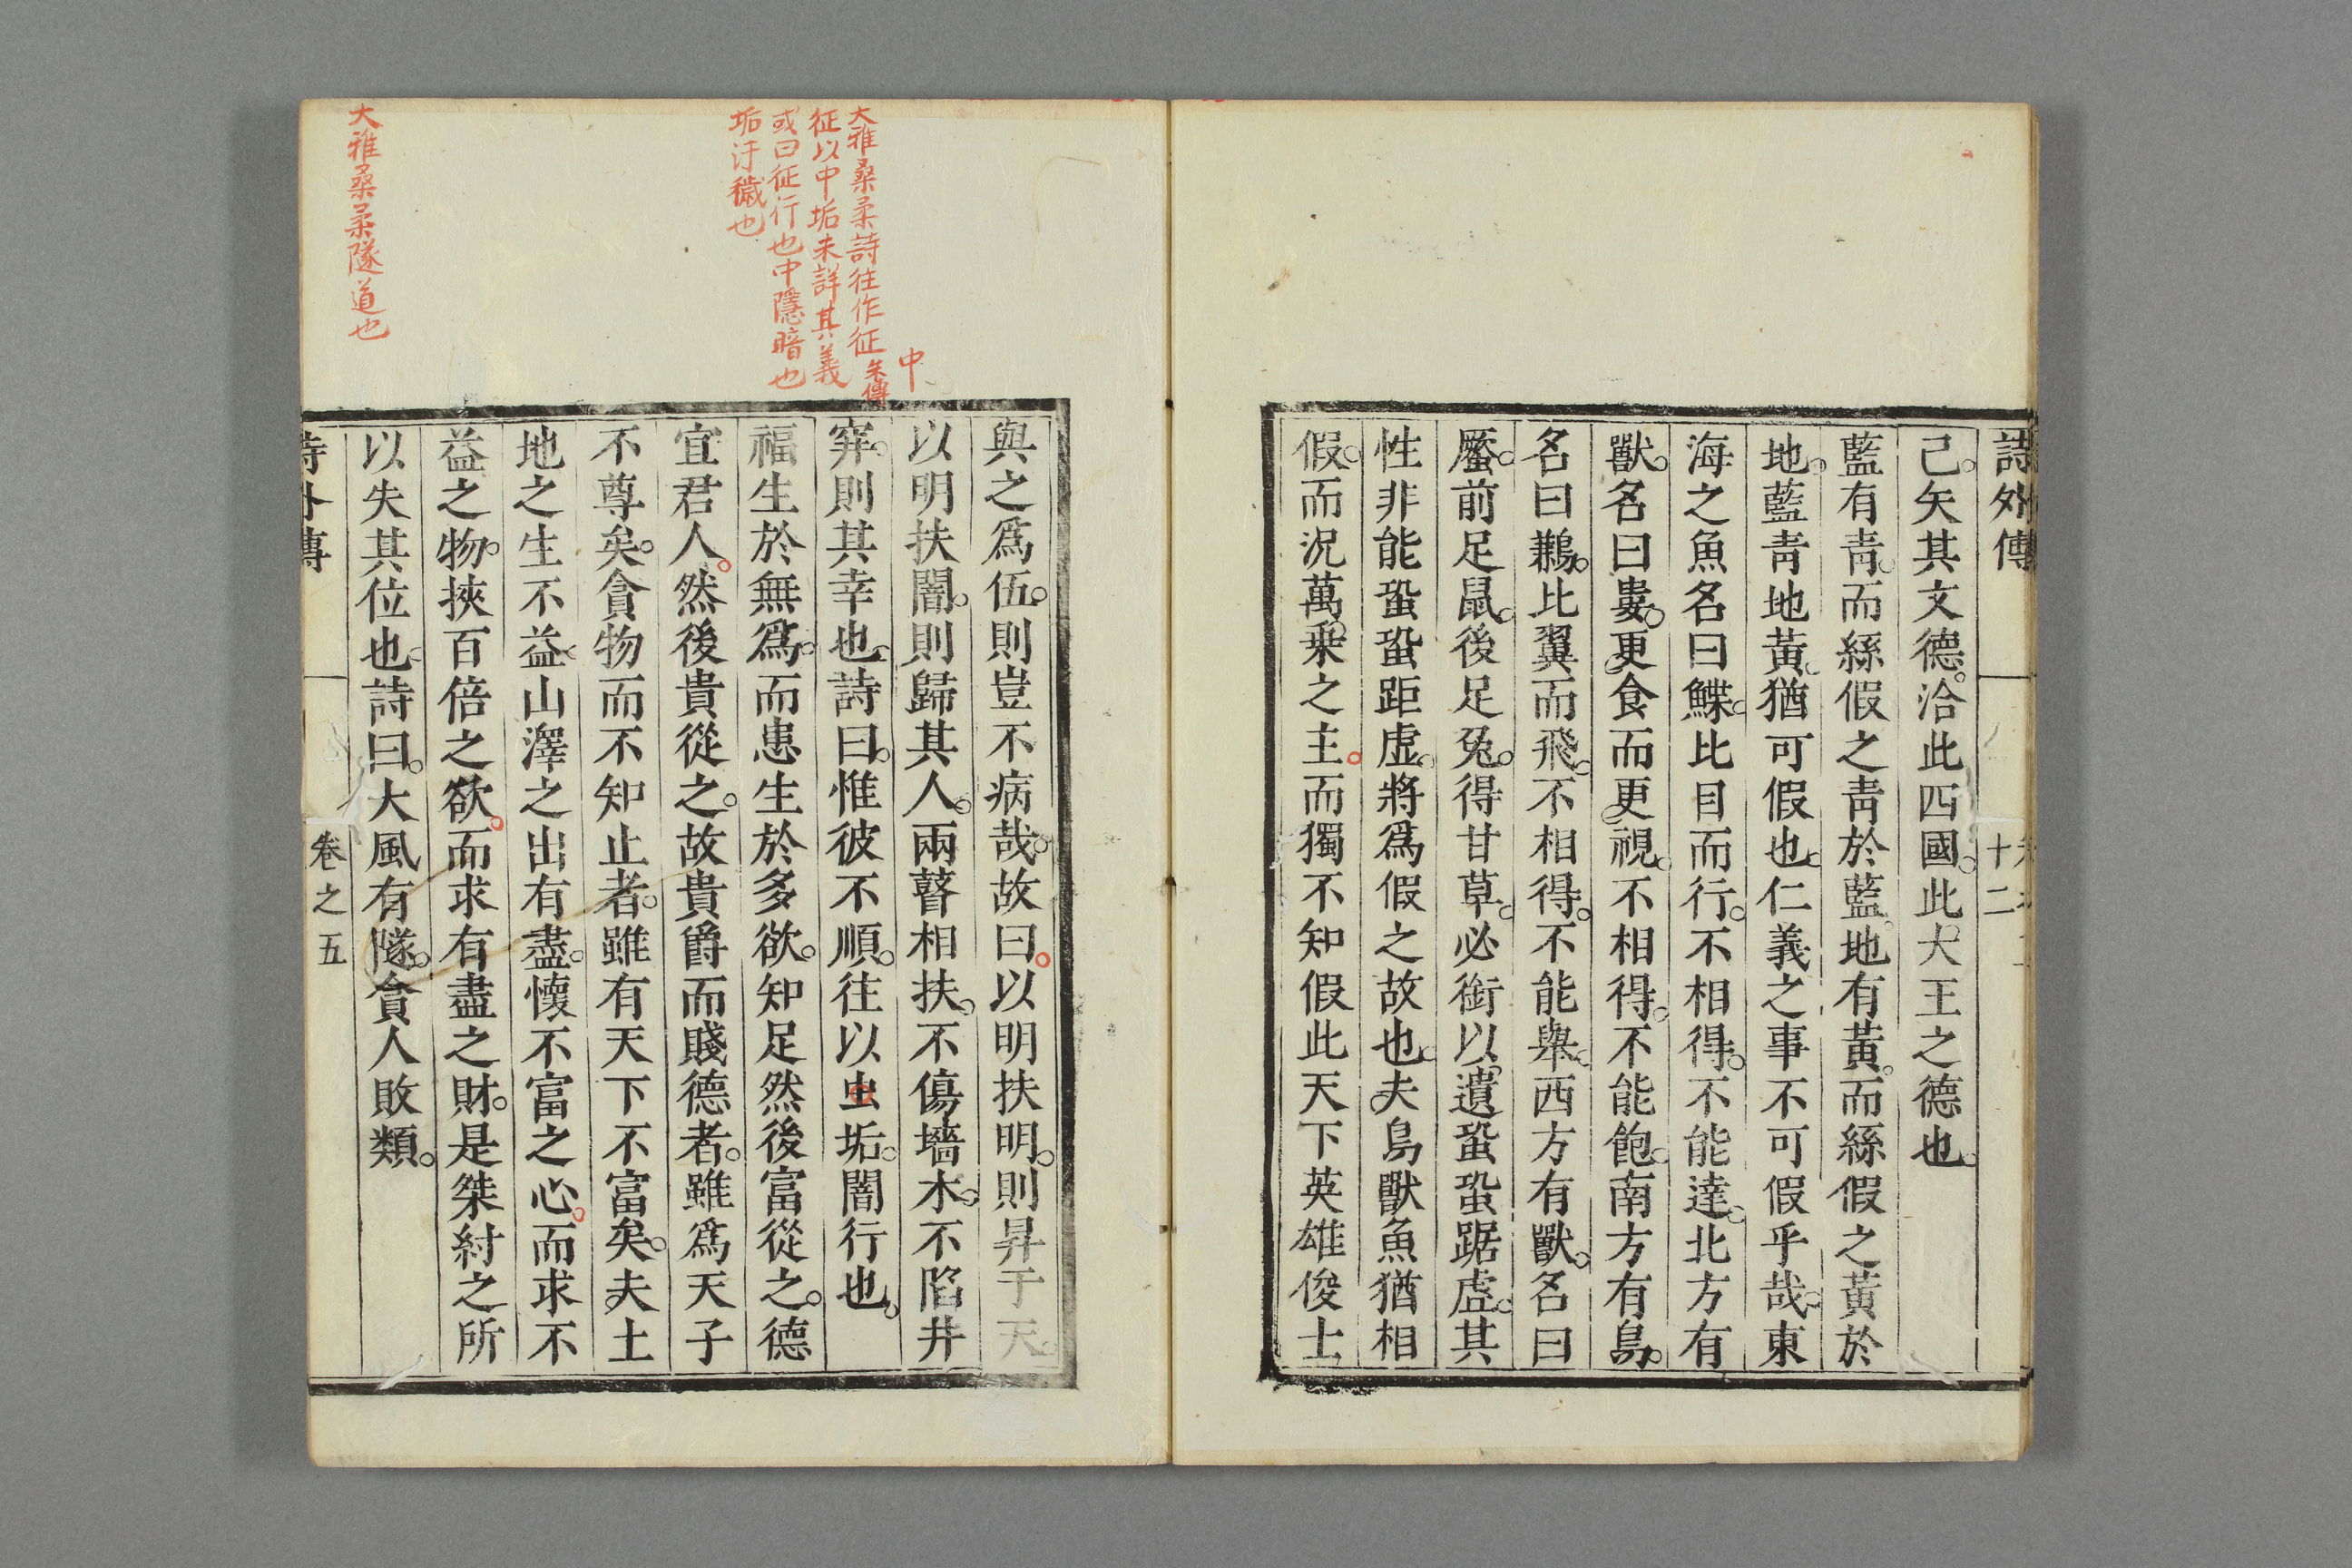 詩外傳
十二
己矢其文德洽此四國此大王之德也
藍有青而絲假之青於藍地有黃而絲假之黃於
地藍青地黃猶可假也仁義之事不可假乎哉東
海之魚名曰鰈比目而行不相得不能達北方有
獸名曰婁更食而更視不相得不能飽南方有鳥
名曰鶼比翼而飛不相得不能舉西方有獸名曰
蟨前足鼠後足兔得甘草必銜以遺蛩蛩距虛其
性非能蛩蛩距虛將爲假之故也夫鳥獸魚猶相
假而況萬乗之主而獨不知假此天下英雄俊士
與之爲伍則豈不病哉故曰以明扶明則昇于天
以明扶闇則歸其人兩瞽相扶不傷墻木不陷井
穽則其幸也詩曰惟彼不順往以虫垢闇行也
福生於無爲而患生於多欲知足然後富從之德
宜君人然後貴從之故貴爵而賤德者雖爲天子
不尊矣貪物而不知止者雖有天下不富矣夫土
地之生不益山澤之出有盡懷不富之心而求不
益之物挾百倍之欲而求有盡之財是桀紂之所
以失其位也詩曰大風有隧貪人敗類
詩外傳
卷之五
中
大雅桑柔詩往作征朱傳
征以中垢未詳其義
或曰征行也中隱暗也
垢汙穢也
大雅桑柔隧道也